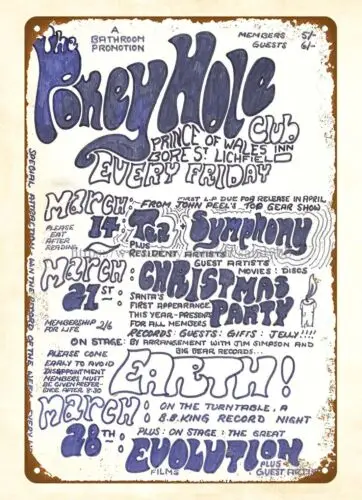 A
BATHROOM
PROMOTION
MEMBERS 5/-
GUESTS 6/-
The
Pokey Hole
Club
PRINCE OF WALES INN
BORE ST. LICHFIELD
EVERY FRIDAY
FIRST L.P DUE FOR RELEASE IN APRIL
March: FROM JOHN PEEL'S TOP GEAR SHOW
PLEASE
EAT
AFTER
READING
14: Tea + Symphony
PLUS
RESIDENT ARTISTS
GUEST ARTISTS
MOVIES: DISCS
March
21ST: CHRISTMAS
PARTY
SANTA'S
FIRST APPEARANCE
THIS YEAR - PRESENTS
FOR ALL MEMBERS
MEMBERSHIP 2/6
FOR LIFE
RECORDS: GUESTS: GIFTS: JELLY!!!!
ON STAGE: BY ARRANGEMENT WITH JIM SIMPSON AND
BIG BEAR RECORDS...
PLEASE COME
EARLY TO AVOID
DISAPPOINTMENT
MEMBERS MUST
BE GIVEN PREFER-
ENCE AFTER 8.30
EARTH!
March: ON THE TURNTABLE, A
B.B.KING RECORD NIGHT
28th: PLUS: ON STAGE: THE GREAT
EVOLUTION
FILMS
PLUS
GUEST ARTIST
SPECIAL ATTRACTION: WIN THE RECORD OF THE WEEK EVERY